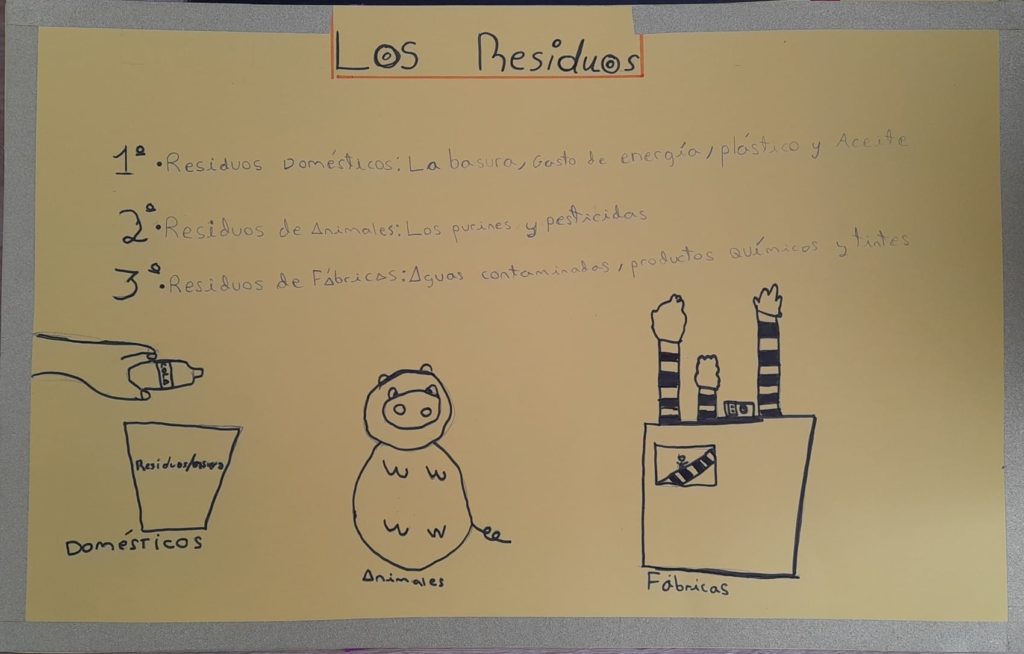 Los Residuos
1º • Residuos Domésticos: La basura, Gasto de energía, plástico y Aceite
2º • Residuos de Animales: Los purines y pesticidas
3º • Residuos de Fábricas: Aguas contaminadas, productos químicos y tintes
COLA
Residuos/basura
Domésticos
Animales
Fábricas